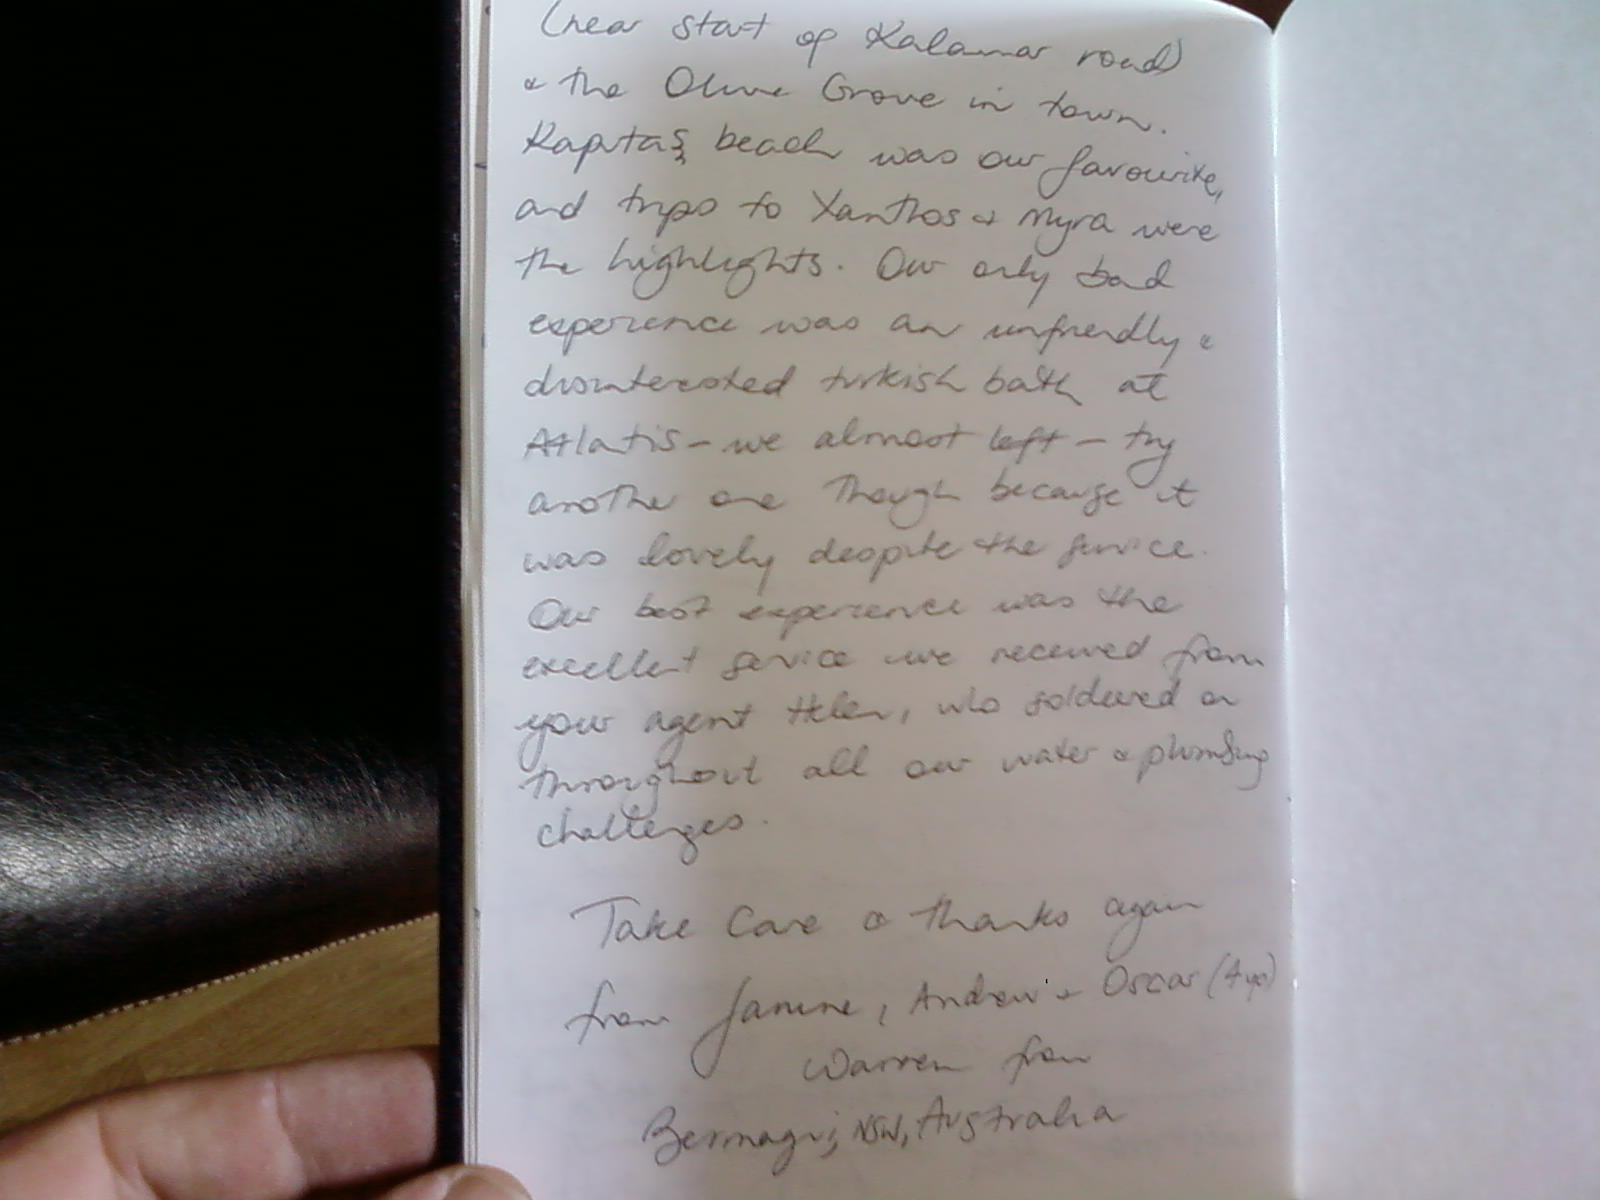 (near start of Kalamar road)
& the Olive Grove in town.
Kaputaş beach was our favourite,
and trips to Xanthos & Myra were
the highlights. Our only bad
experience was an unfriendly &
disinterested turkish bath at
Atlatis - we almost left - try
another one though because it
was lovely despite the service.
Our best experience was the
excellent service we received from
your agent Helen, who soldiered on
throughout all our water & plumbing
challenges.
Take Care & thanks again
from Janine, Andrew & Oscar (4 yo)
Warren from
Bermagui, NSW, Australia